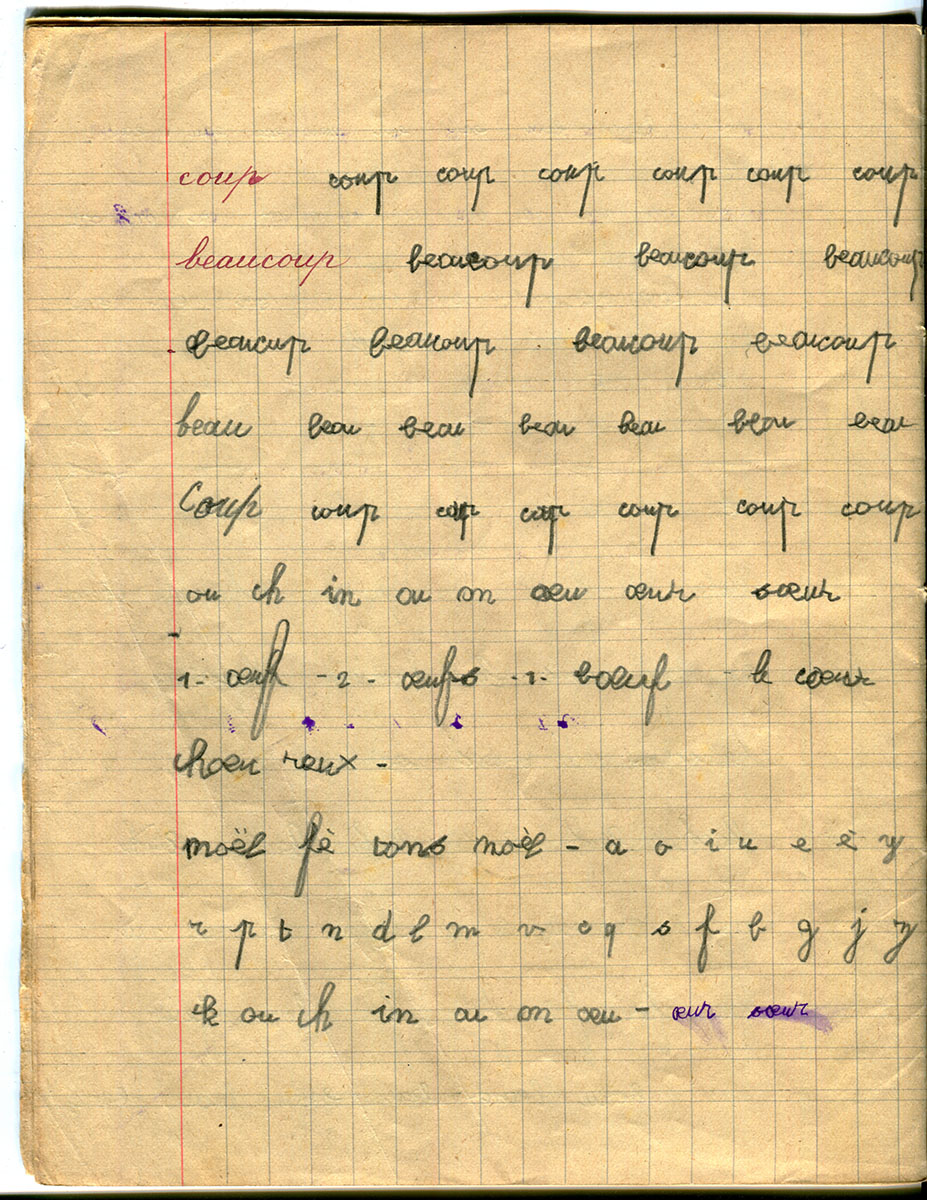 coup coup coup coup coup coup coup
beaucoup beaucoup beaucoup beaucoup
beaucup beaucoup beaucoup beaucoup
beau beau beau beau beau beau beau
Coup coup coup coup coup coup coup
ou ch in au on œu œur sœur
1 - œuf - 2 - œufs - 1 - bœuf - le cœur
choeu reux -
noël fê tons noël - a o i u e é y
r p t n d l m v c q s f b g j z
k ou ch in au on œu - œur sœur